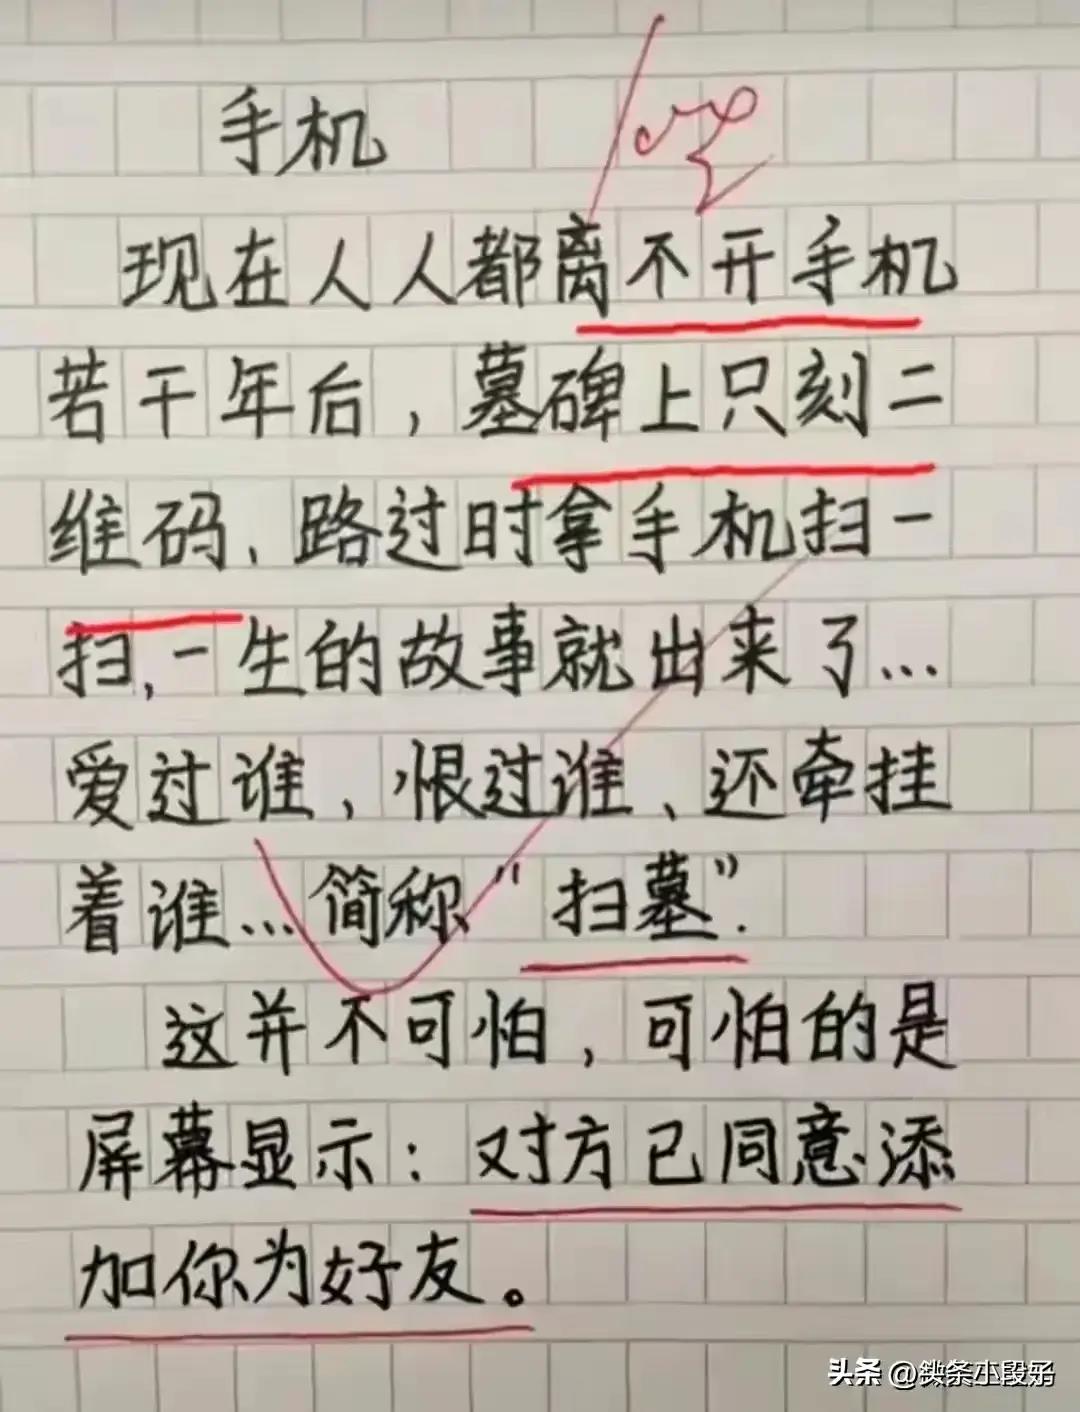 手机
现在人人都离不开手机
若干年后，墓碑上只刻二
维码、路过时拿手机扫一
扫，一生的故事就出来了…
爱过谁，恨过谁、还牵挂
着谁…简称“扫墓”.
这并不可怕，可怕的是
屏幕显示：对方已同意添
加你为好友。
头条 @鉄条小段子